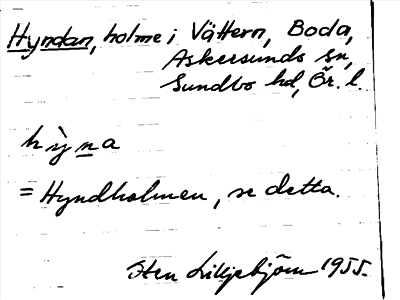 Hyndan, holme i Vättern, Boda,
Askersunds sn,
Sundbo hd, Ör. l.
hỳna
= Hyndholmen, se detta.
Sten Lilljebjörn 1955.